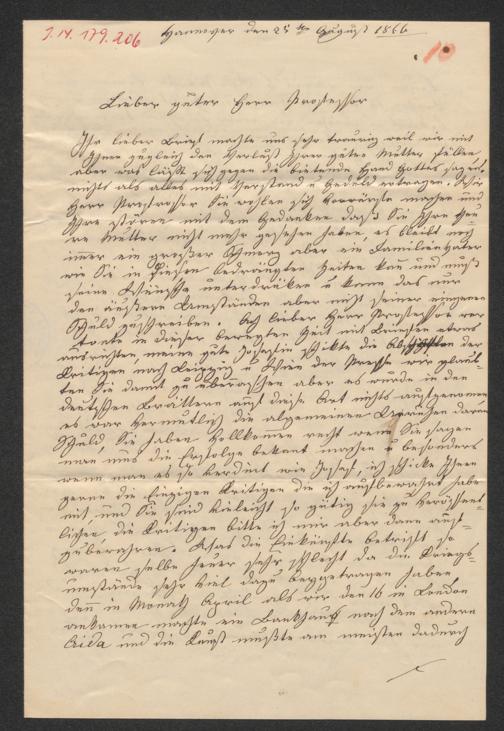 J.N. 179.206
Hannover den 25ten August 1866
10
Lieber guter Herr Professor
Ihr lieber Brief machte uns sehr traurig weil wir mit
Ihnen zugleich den Verlust Ihrer guten Mutter fühlen
aber was läßt sich gegen die bietende Hand Gottes sagen,
nichts als alles mit Verstand u Geduld ertragen. Sie
Herr Professor Sie sollen sich Vorwürfe machen und
Ihre stören mit dem Gedanken daß Sie Ihre theu-
re Mutter nicht mehr gesehen haben, es bleibt noch
immer ein großer Schmerz aber ein Familienvater
wie Sie in diesen bedrängten Zeiten kan und muß
seine Wünsche unterdrücken u kann das nur
den äußeren Umständen aber nicht seiner eigenen
Schuld zuschreiben. Ach lieber Herr Professor wer
konte in dieser bewegten Zeit mit Briefen etwas
ausrichten, meine gute Josefin schickte die Abschriften der
Kritigen nach Leipzig u Wien der Presse wir glaub-
ten Sie damit zu überraschen aber es wurde in den
deutschen Blättern auf diese Art nichts aufgenommen
es war vermutlich die allgemeinen Ursachen daran
Schuld, Sie haben vollkomen recht wenn Sie sagen
man muß die Erfolge bekant machen u besonders
wenn man es so verdint wie Josef, ich schicke Ihnen
gerne die einzigen Kritigen die ich aufbewahrt habe
mit, und Sie sind vieleicht so gütig sie zu veröffent-
lichen, die Kritigen bitte ich mir aber dann auf-
zubewahren. Was die Einkünfte betrifft so
waren selbe heuer sehr schlecht da die Kriegs-
umstände sehr viel dazu beygetragen haben
den im Monath April als wir den 16 in London
ankamen machte ein Bankhaus nach dem andern
Crida und die Kunst mußte am meisten dadurch